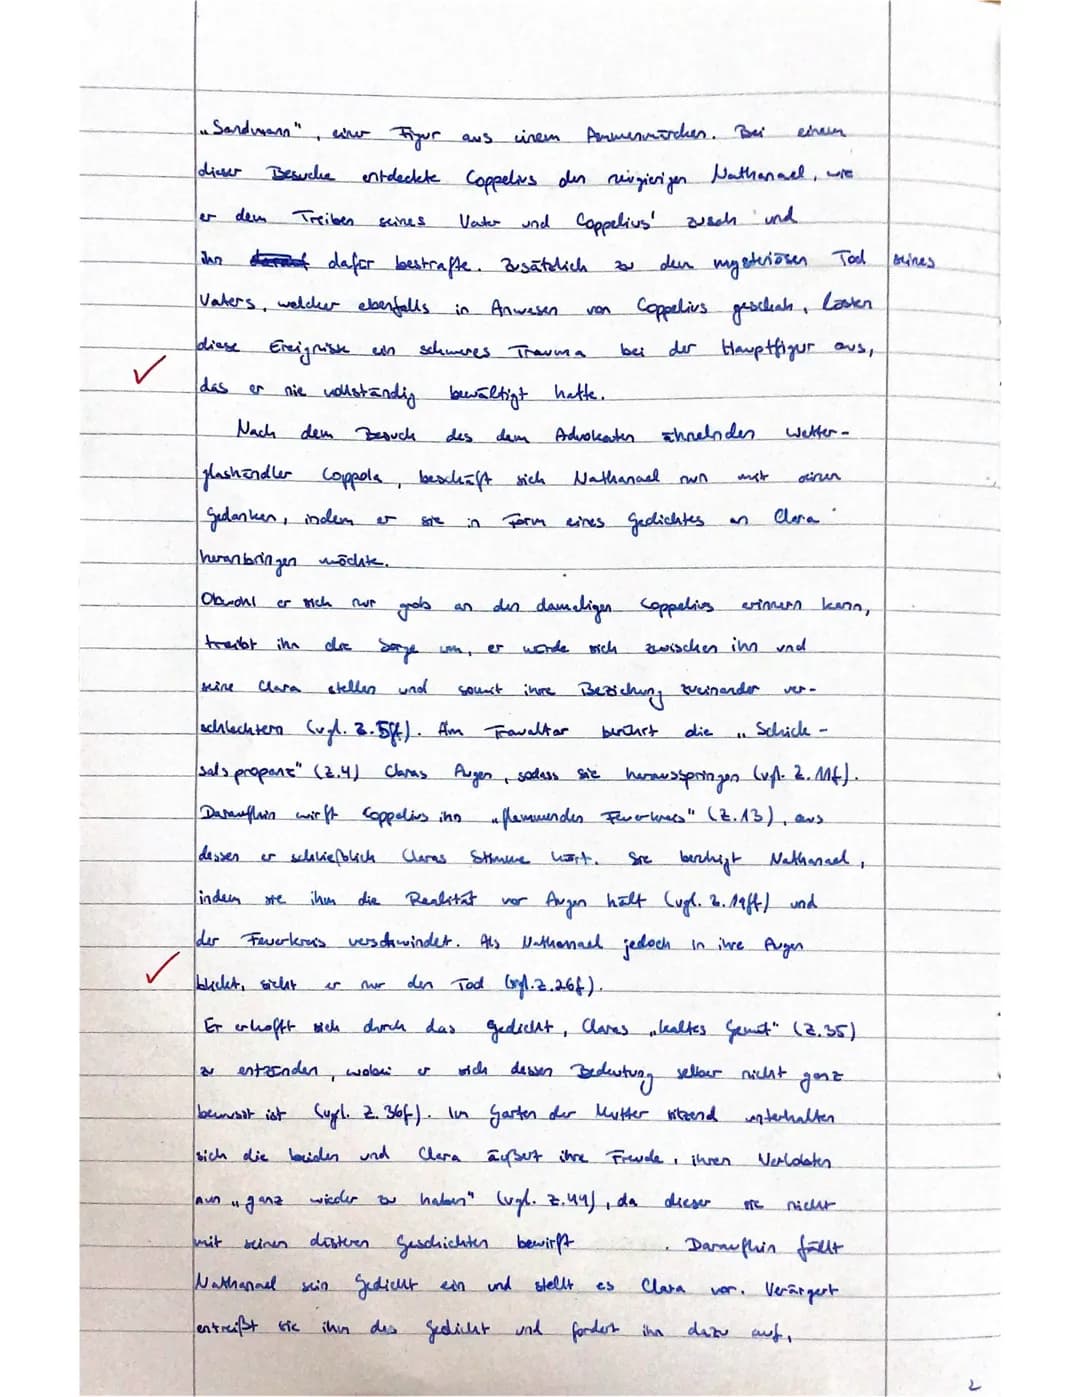 „Sandmann", einer Figur aus einem Ammenmärchen. Bei einem
dieser Besuche entdeckte Coppelius den neugierigen Nathanael, wie
er dem Treiben seines Vater und Coppelius' zusah und
ihn dafür bestrafte. Zusätzlich zu den mysteriösen Tod seines
Vaters, welcher ebenfalls in Anwesen von Coppelius geschah, lösten
diese Ereignisse ein schweres Trauma bei der Hauptfigur aus,
das er nie vollständig bewältigt hatte.
Nach dem Besuch des dem Advokaten ähnelnden Wetter-
glashändler Coppola, beschäft sich Nathanael nun mit seinen
Gedanken, indem er sie in Form eines Gedichtes an Clara
heranbringen möchte.
Obwohl er sich nur grob an den damaligen Coppelius erinnern kann,
treibt ihn die Sorge um, er würde sich zwischen ihn und
seine Clara stellen und somit ihre Beziehung zueinander ver-
schlechtern (vgl. Z. 5ff). Am Traualtar berührt die „Schick-
salspropanz" (Z.4) Claras Augen, sodass sie herausspringen (vgl. Z. 11f).
Daraufhin wirft Coppelius ihn „flammenden Feuerkreis" (Z.13), aus
dessen er schließlich Claras Stimme hört. Sie beruhigt Nathanael,
indem sie ihm die Realität vor Augen hält (vgl. Z. 19ff) und
der Feuerkreis verschwindet. Als Nathanael jedoch in ihre Augen
blickt, sieht er nur den Tod (vgl. Z. 26f).
Er erhofft sich durch das Gedicht, Claras „kaltes Gemüt" (Z.35)
zu entzünden, wobei er sich dessen Bedeutung selber nicht ganz
bewusst ist (vgl. Z. 36f). Im Garten der Mutter sitzend unterhalten
sich die beiden und Clara äußert ihre Freude, ihren Verlobten
nun „ganz wieder zu haben" (vgl. Z.44), da dieser sie nicht
mit seinen düsteren Geschichten bewirft. Daraufhin fällt
Nathanael sein Gedicht ein und stellt es Clara vor. Verärgert
entreißt sie ihm das Gedicht und fordert ihn dazu auf,
2